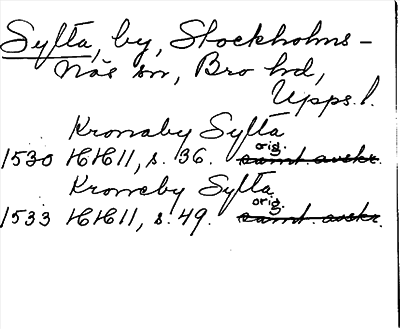 Sylta, by, Stockholms-
Näs sn, Bro hd,
Upps. l.
Kronaby Sylta
orig.
1530 HH 11, s. 36. samt. avskr.
Kroneby Sylta
orig.
1533 HH 11, s. 49. samt. avskr.